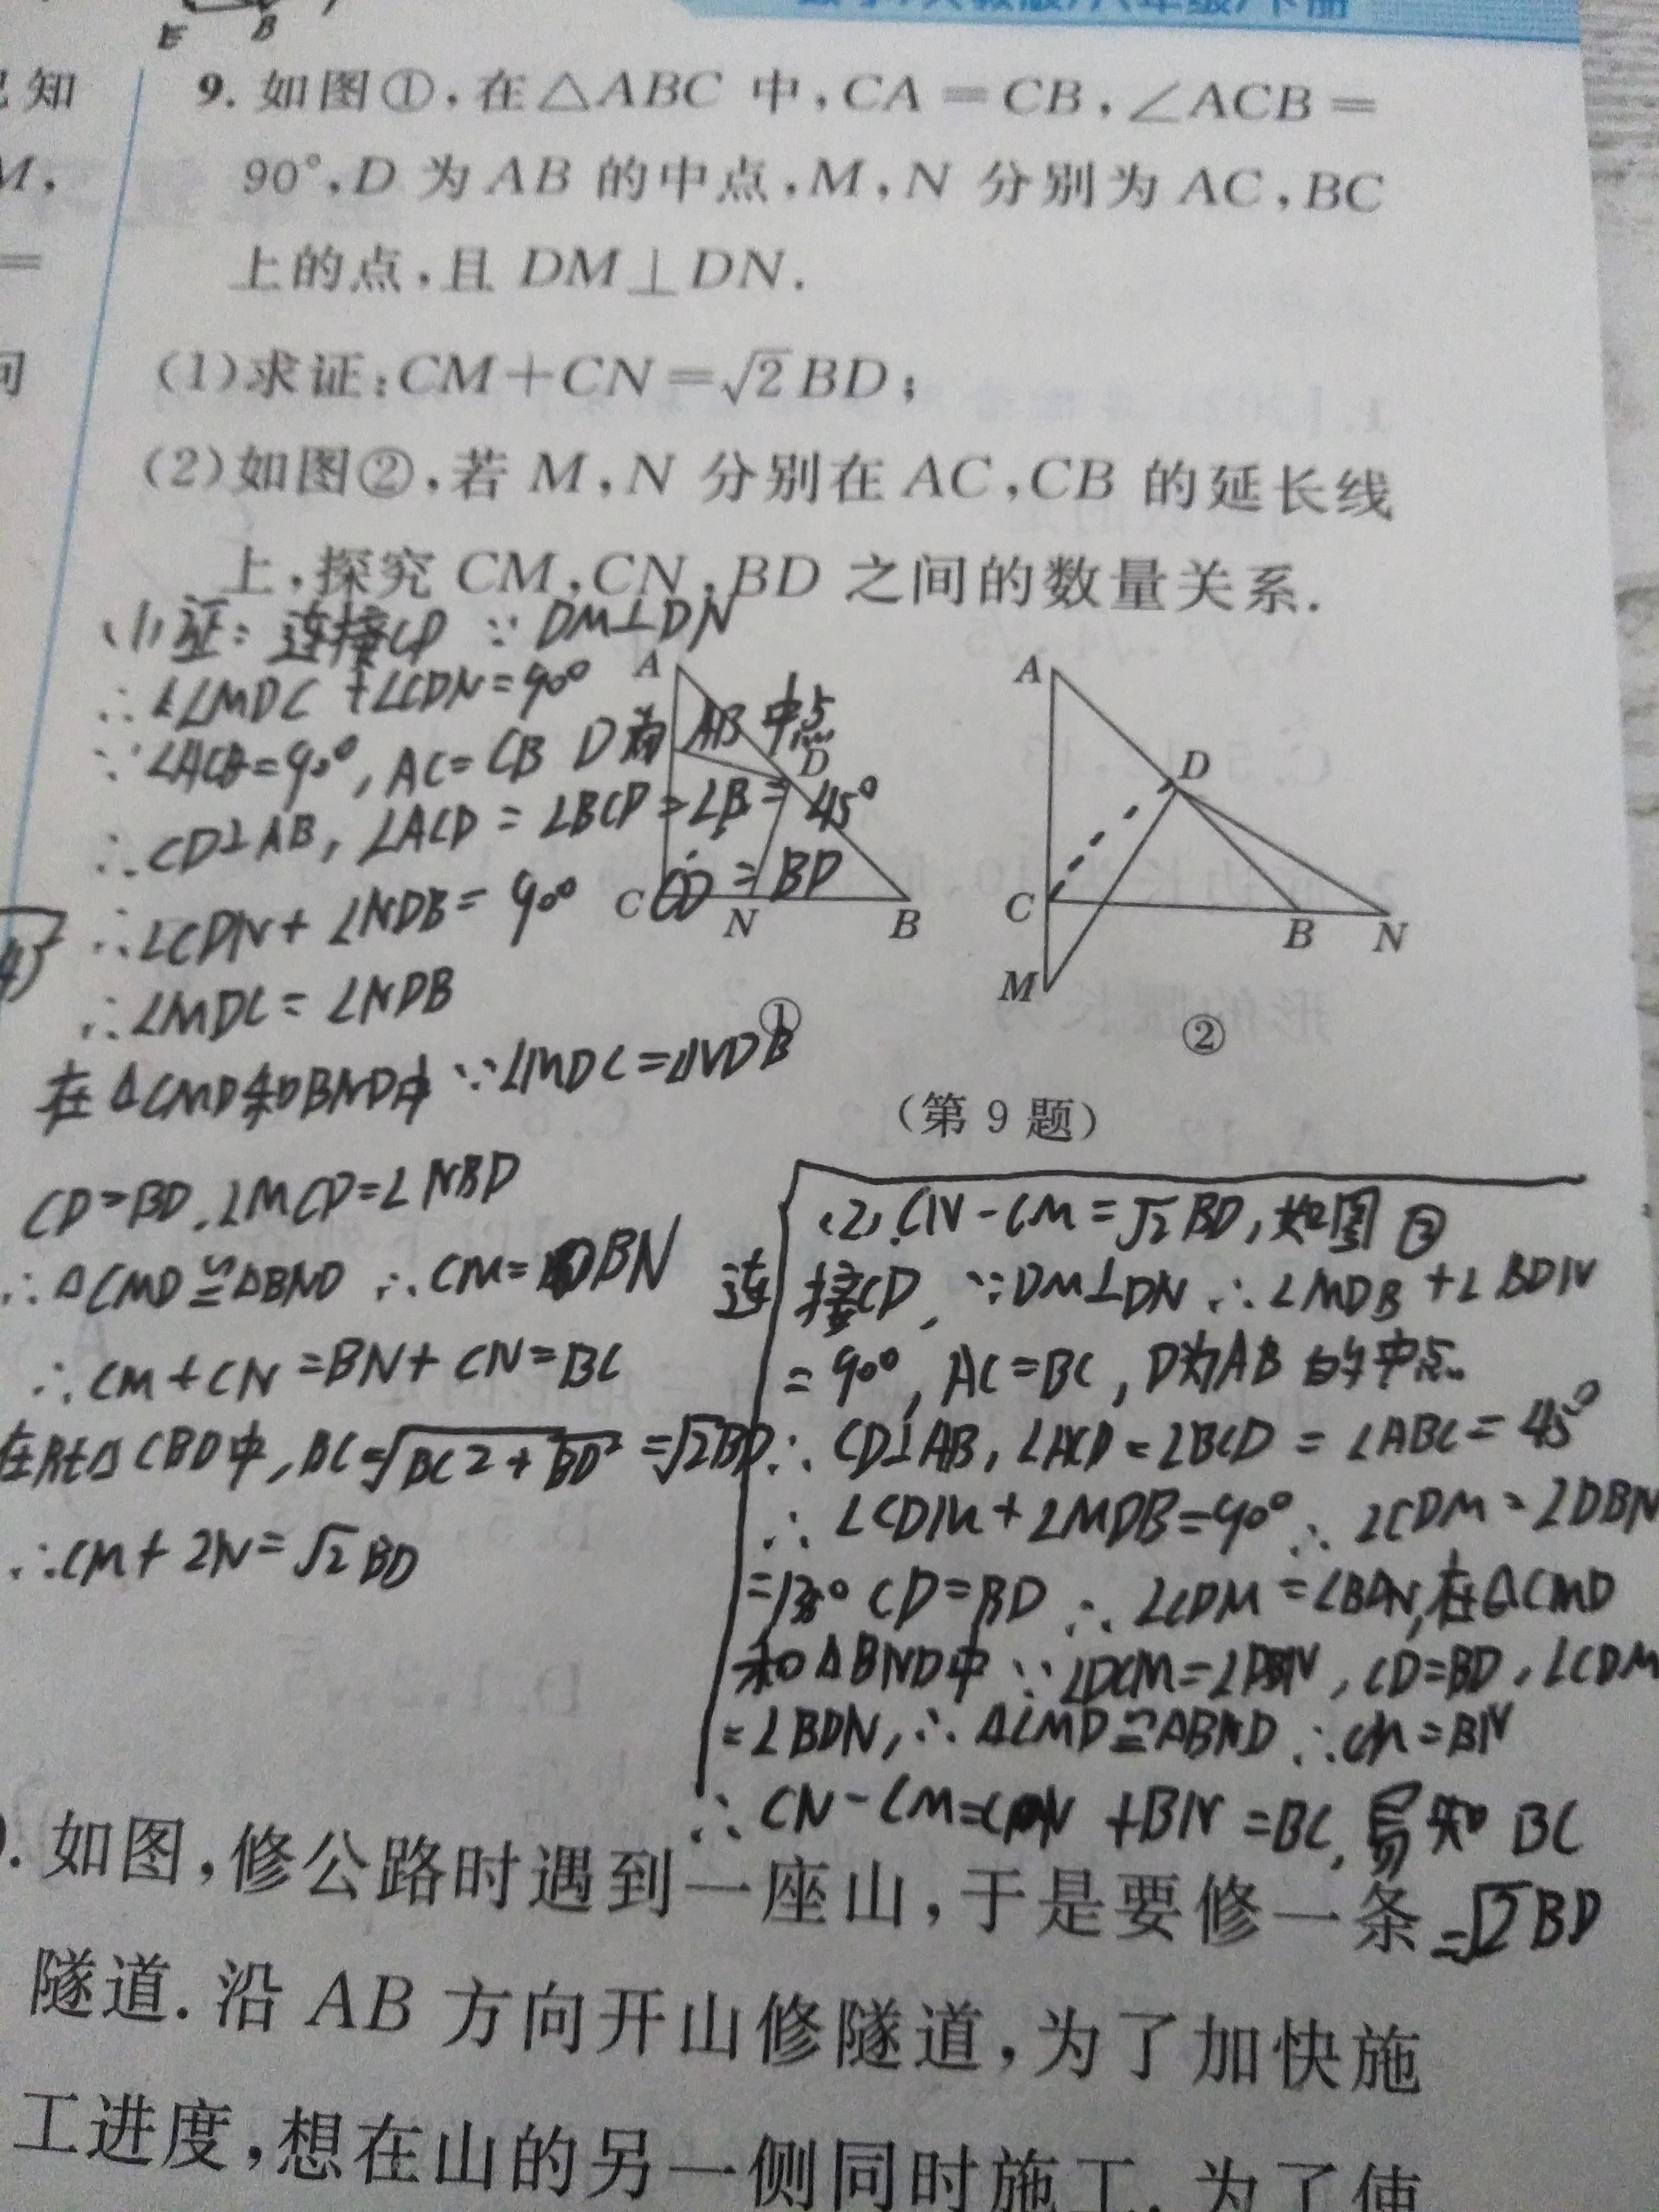 E B
知
M,
=
9. 如图①,在△ABC 中,CA=CB,∠ACB=
90°,D 为 AB 的中点,M,N 分别为 AC,BC
上的点,且 DM⊥DN.
(1)求证:CM+CN=√2BD;
(2)如图②,若 M,N 分别在 AC,CB 的延长线
上,探究 CM,CN,BD 之间的数量关系.
(1)证:连接CD ∵DM⊥DN
∴∠MDC+∠CDN=90°
∵∠ACB=90°,AC=CB D为AB中点
∴CD⊥AB,∠ACD=∠BCD=∠B=45°
CD=BD
∴∠CDN+∠NDB=90°
∴∠MDC=∠NDB
在△CMD和BND中∵∠MDC=∠NDB
CD=BD,∠MCD=∠NBD
∴△CMD≌△BND ∴CM=BN
∴CM+CN=BN+CN=BC
在Rt△CBD中,BC=√DC2+BD²=√2BD
∴CM+2N=√2BD
A D C N B
①
A D C B N M
②
(第 9 题)
(2).CN-CM=√2BD,如图②
连接CD,∵DM⊥DN∴∠MDB+∠BDN
=90°,AC=BC,D为AB的中点
∴CD⊥AB,∠ACD=∠BCD=∠ABC=45°
∴∠CDM+∠MDB=90°∴∠CDM=∠DBN
=135° CD=BD∴∠CDM=∠BDN,在△CMD
和△BND中∵∠DCM=∠DBN,CD=BD,∠CDM
=∠BDN,∴△CMD≌△BND∴CM=BN
∴CN-CM=CN+BN=BC,易知BC
=√2BD
. 如图,修公路时遇到一座山,于是要修一条
隧道. 沿 AB 方向开山修隧道,为了加快施
工进度,想在山的另一侧同时施工. 为了使